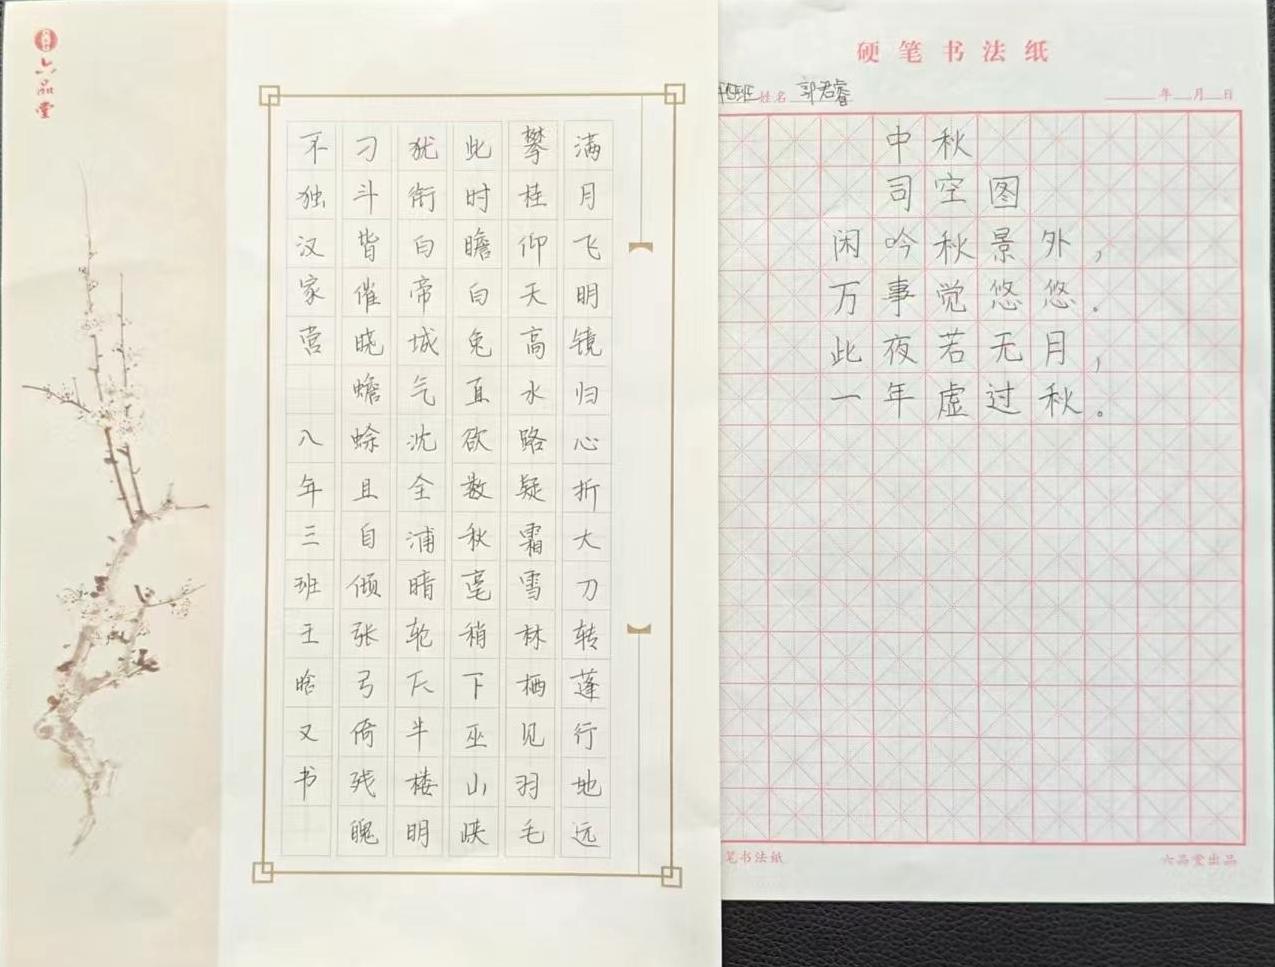 六品堂
满月飞明镜归心折大刀转蓬行地远
攀桂仰天高水路疑霜雪林栖见羽毛
此时瞻白兔直欲数秋毫稍下巫山峡
犹衔白帝城气沈全浦暗轮仄半楼明
刁斗皆催晓蟾蜍且自倾张弓倚残魄
不独汉家营 八年三班王晗又书
硬笔书法纸
班 姓名 郭君睿 年 月 日
中秋
司空图
闲吟秋景外，
万事觉悠悠。
此夜若无月，
一年虚过秋。
笔书法纸 六品堂出品